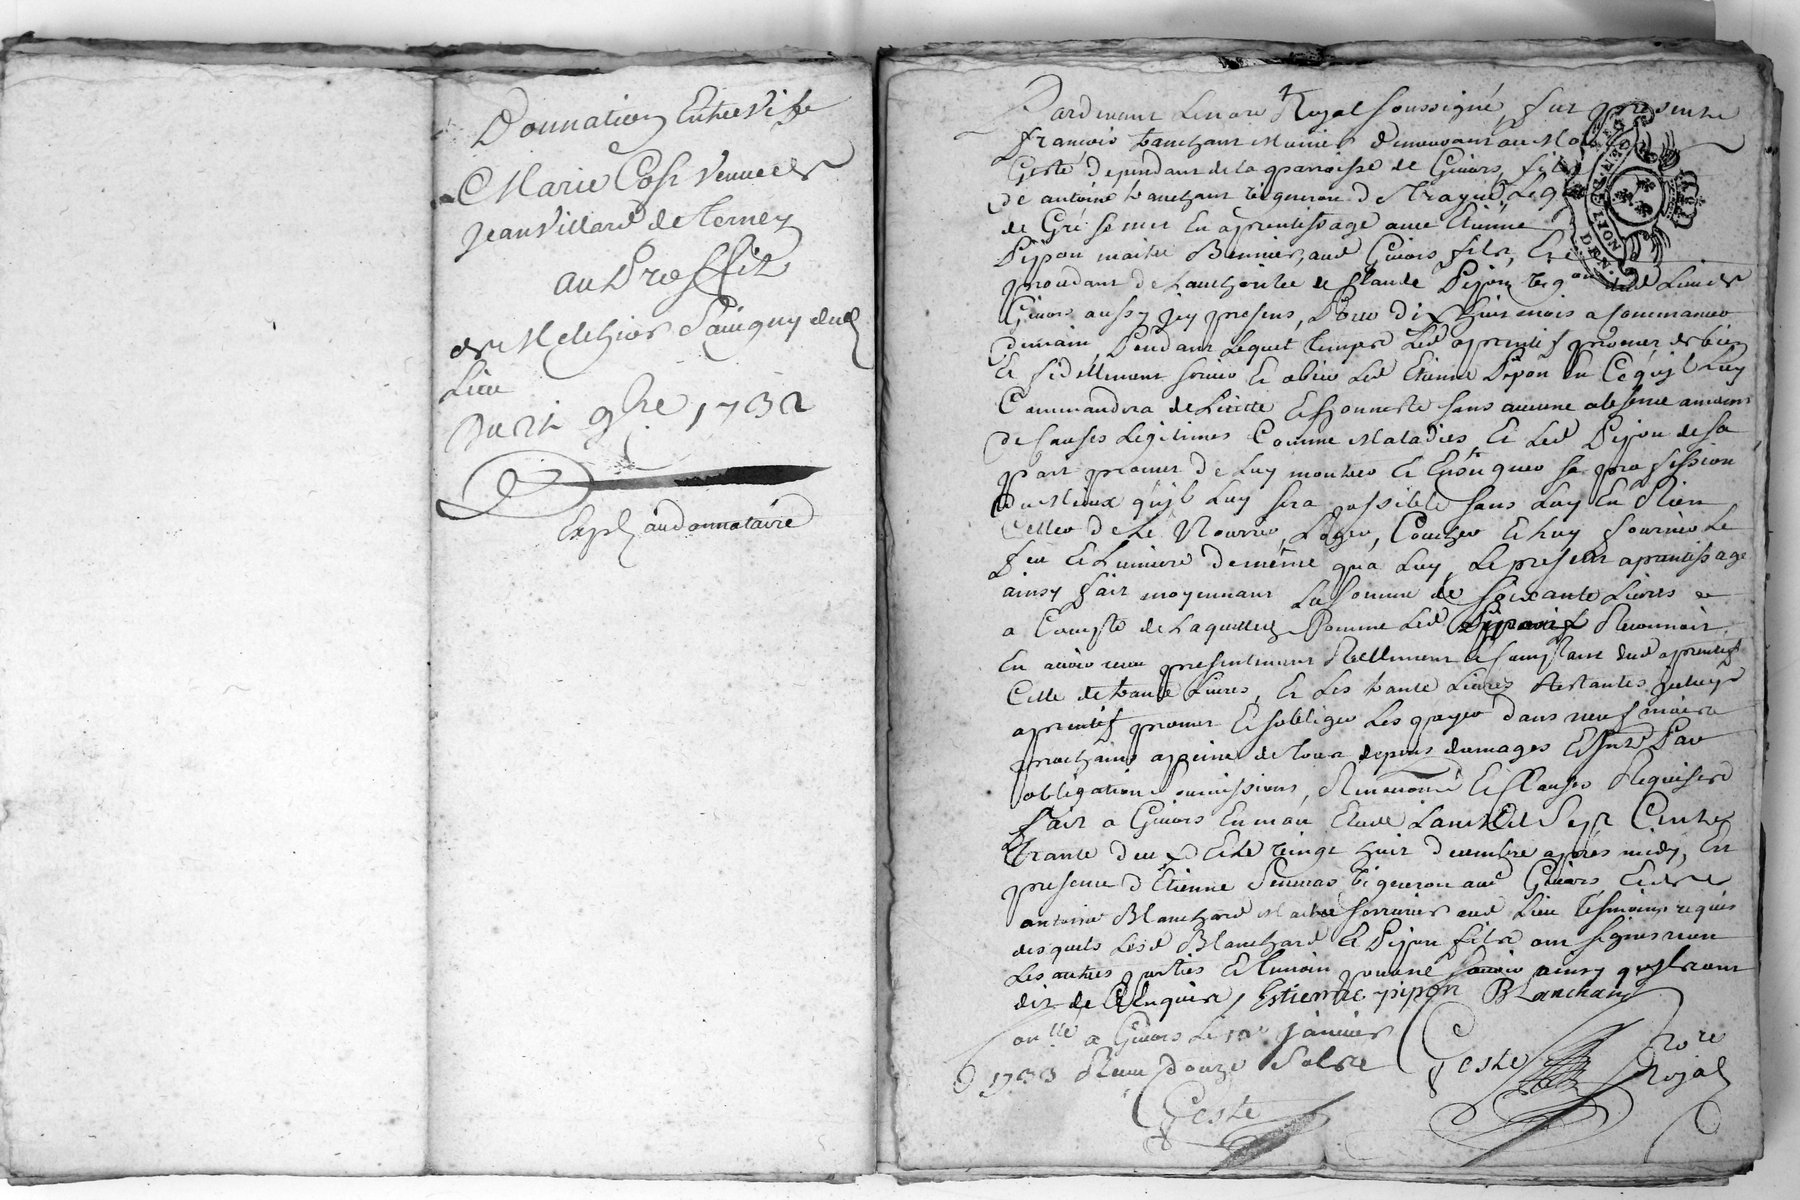 Donnation Entre Vifs
Marie Cost Veuve de
Jean Villard de Terney
au Proffit
de Melchior Savigny dud
Lieu
Du 21 9bre 1732
Exp au donnataire
Pardevant Lenore Royal soussigné, fut presente
françois tranchant Munier demeurant au Mo
Geste dependant de la parroisse de Givors, fils
de antoine tranchant vigneron de Trayne Leq
de Gré se met En aprentissage avec Etienne
Pipon maitre Bennier, aud Givors fils, Et
proudant de Lauthoritee de Claude Pipon vigon dud Lieu de
Givors aussy jcy present, Pour dix huit mois a Commancer
demain, Pendant Lequel temps Led aprentif promet de bien
Et fidellement servir Et obeir Led Etienne Pipon En Ce quil Luy
Commandera de Licitte Et honneste sans aucune absence a moins
de Causes Legitimes Comme Maladies, Et Led Pipon de sa
part promet de Luy montrer Et Enseigner sa profession
du Mieux quil Luy sera possible sans Luy En Rien
Celler de Le Nourrir, Loger, Coucher Et Luy fournir Le
feu Et Lumiere de même qua Luy, Le present aprantissage
ainsy fait moyennant La somme de soixante Livres
a Compte de Laquelle somme Led Reconnoit
En avoir receu presentement Reellement Comptant dud apprentif
Celle de trante Livres, Et Les trante Livres Restantes jceluy
aprentif promet Et soblige Les payer dans neuf mois
prochains appeine de tous depens dumages Et Par
obligation soumissions, Renonciom Et Clauses Requises
fait a Givors En mon Etude Lan Mil Sept Cents
Trante deux Et Le vingt huit decembre après midy, En
presence d Etienne vigneron aud Givors Et de
antoine Blanchard Maitre serrurier aud Lieu tesmoins requis
desquels Led Blanchard Et Pipon fils ont signés non
Les autres parties Et temoin pour ne savoir ainsy quils ont
dit de Ce Enquis, Estienne pipon Blanchard
onlle a Givors Le Janvier
1733 Receu douze Sols
Geste Nore
Royal
Geste
GEN. DE LION